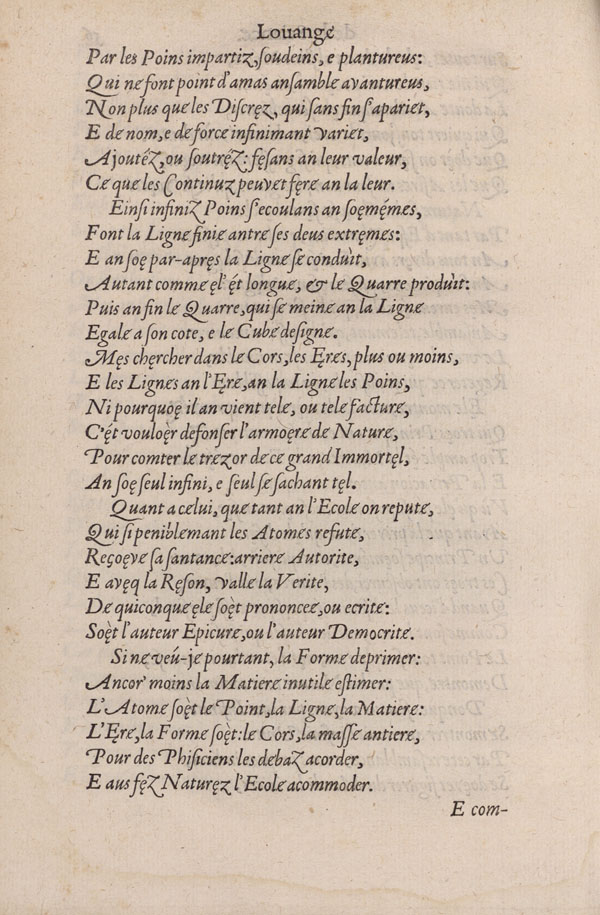 Louange
Par les Poins impartiz, ſoudeins, e plantureus:
Qui ne font point d'amas anſamble avantureus,
Non plus que les Diſcręz, qui ſans fin s'apariet,
E de nom, e de force infinimant variet,
Ajoutéz, ou ſoutręz: fęſans an leur valeur,
Ce que les Continuz peuvet fęre an la leur.
Einſi infiniz Poins s'ecoulans an ſoęmémes,
Font la Ligne finie antre ſes deus extręmes:
E an ſoę par-apręs la Ligne ſe conduìt,
Autant comme ęl' ét longue, & le Quarre produìt:
Puis an fin le Quarre, qui ſe meine an la Ligne
Egale a ſon cote, e le Cube deſigne.
Męs chęrcher dans le Cors, les Ęres, plus ou moins,
E les Lignes an l'Ęre, an la Ligne les Poins,
Ni pourquoę il an vient tele, ou tele facture,
C'ét vouloęr defonſer l'armoęre de Nature,
Pour comter le trezor de ce grand Immortęl,
An ſoę ſeul infini, e ſeul ſe ſachant tęl.
Quant a celui, que tant an l'Ecole on repute,
Qui ſi peniblemant les Atomes refute,
Reçoęve ſa ſantance: arriere Autorite,
E avęq la Ręſon, valle la Verite,
De quiconque ęle ſoęt prononcee, ou ecrite:
Soęt l'auteur Epicure, ou l'auteur Democrite.
Si ne veú-je pourtant, la Forme deprimer:
Ancor' moins la Matiere inutile eſtimer:
L'Atome ſoęt le Point, la Ligne, la Matiere:
L'Ęre, la Forme ſoęt: le Cors, la maſſe antiere,
Pour des Phiſiciens les debaz acorder,
E aus fęz Naturęz l'Ecole acommoder.
E com-